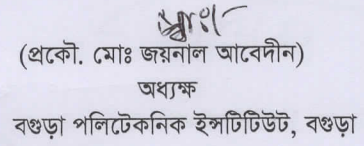 (প্রকৌ. মোঃ জয়নাল আবেদীন)
অধ্যক্ষ
বগুড়া পলিটেকনিক ইন্সটিটিউট, বগুড়া